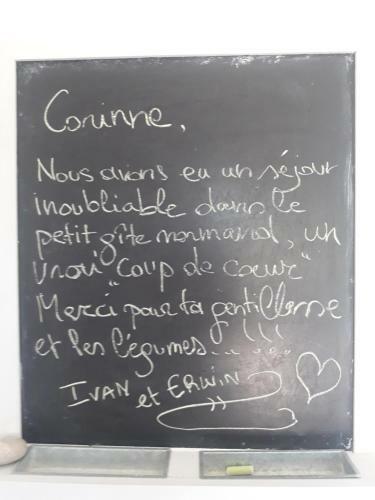 Corinne,
Nous avons eu un séjour
inoubliable dans le
petit gîte normand, un
vrai "Coup de coeur"
Merci pour ta gentillesse
et les légumes...!!!
IVAN et ERWIN